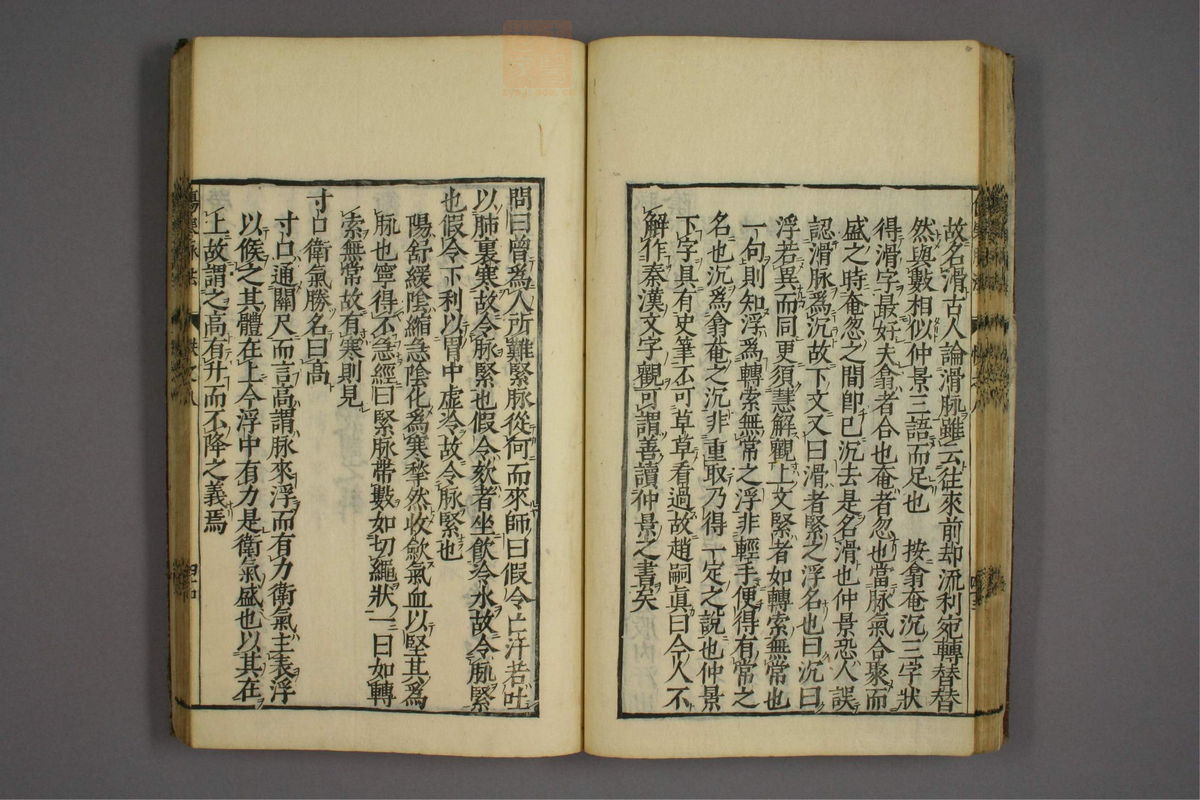 故名滑古人論滑脉雖云往來前却流利宛轉替替
然與數相似仲景三語而足也　按翕奄沉三字狀
得滑字最好夫翕者合也奄者忽也當脉氣合聚而
盛之時奄忽之間卽已沉去是名滑也仲景恐人誤
認滑脉爲沉故下文又曰滑者緊之浮名也曰沉曰
浮若異而同更須慧解觀上文緊者如轉索無常也
一句則知浮爲轉索無常之浮非輕手便得有常之
名也沉爲翕奄之沉非重取乃得一定之說也仲景
下字具有史筆不可草草看過故趙嗣眞曰今人不
解作秦漢文字觀可謂善讀仲景之書矣
問曰曾爲人所難緊脉從何而來師曰假令亡汗若吐
以肺裏寒故令脉緊也假令欬者坐飲冷水故令脉緊
也假令下利以胃中虛冷故令脉緊也
陽舒緩陰縮急陰化爲寒犂然收歛氣血以堅其爲
脉也寧得不急經曰緊脉帶數如切繩狀一曰如轉
索無常故有寒則見
寸口衛氣勝名曰高
寸口通關尺而言高謂脉來浮而有力衛氣主表浮
以候之其體在上今浮中有力是衛氣盛也以其在
上故謂之高有升而不降之義焉
四十